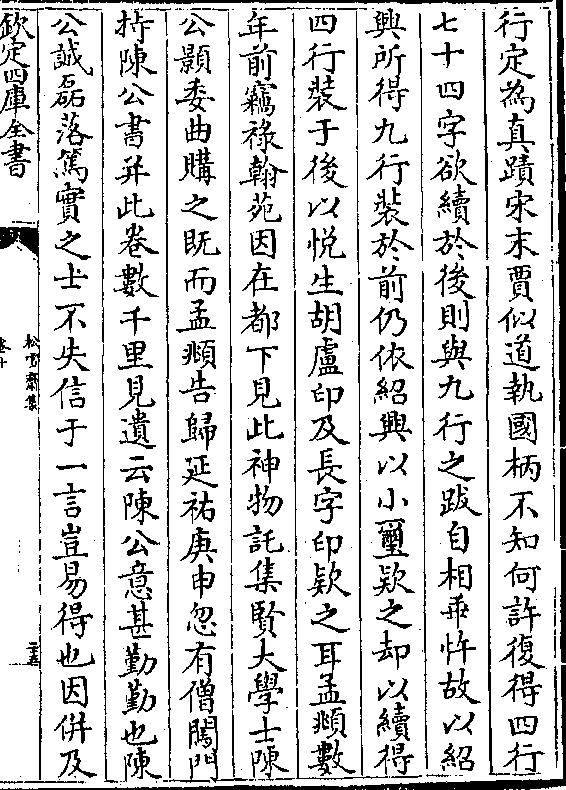 行定為真蹟宋末賈似道執國柄不知何許復得四行
七十四字欲續於後則與九行之跋自相乖忤故以紹
興所得九行裝於前仍依紹興以小璽欵之却以續得
四行裝于後以悅生胡盧印及長字印欵之耳孟頫數
年前竊祿翰苑因在都下見此神物託集賢大學士陳
公顥委曲購之既而孟頫告歸延祐庚申忽有僧闖門
持陳公書并此卷數千里見遺云陳公意甚勤勤也陳
公誠磊落篤實之士不失信于一言豈易得也因併及
欽定四庫全書
松雪齋集
卷十
二十五